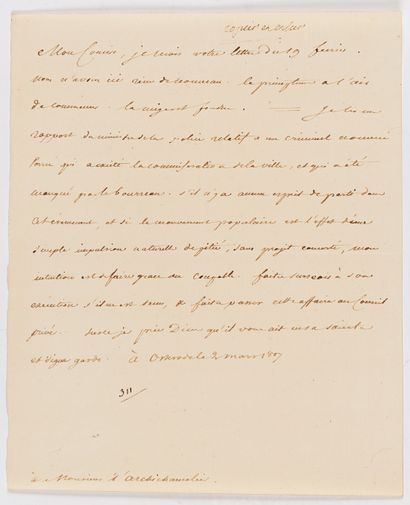 Mon Cousin, je reçois votre lettre du 19 février.
nous n'avons ici rien de nouveau. le printemps a l'air
de commencer. la neige est fondue. — Je lis un
rapport du ministre de la police relatif à un criminel nommé
qui a excité la commisération de la ville, et qui a été
manqué par le bourreau. s'il n'y a aucun esprit de parti dans
cet événement, et si le mouvement populaire est l'effet d'une
simple impulsion naturelle de pitié, sans projet concerté, mon
intention est de faire grace au coupable. faites surseoir à son
exécution s'il en est tems, & faites passer cette affaire au Conseil
privé. sur ce je prie Dieu qu'il vous ait en sa sainte
et digne garde. à Osterode le 2 mars 1807
311
à Monsieur l'archichancelier.